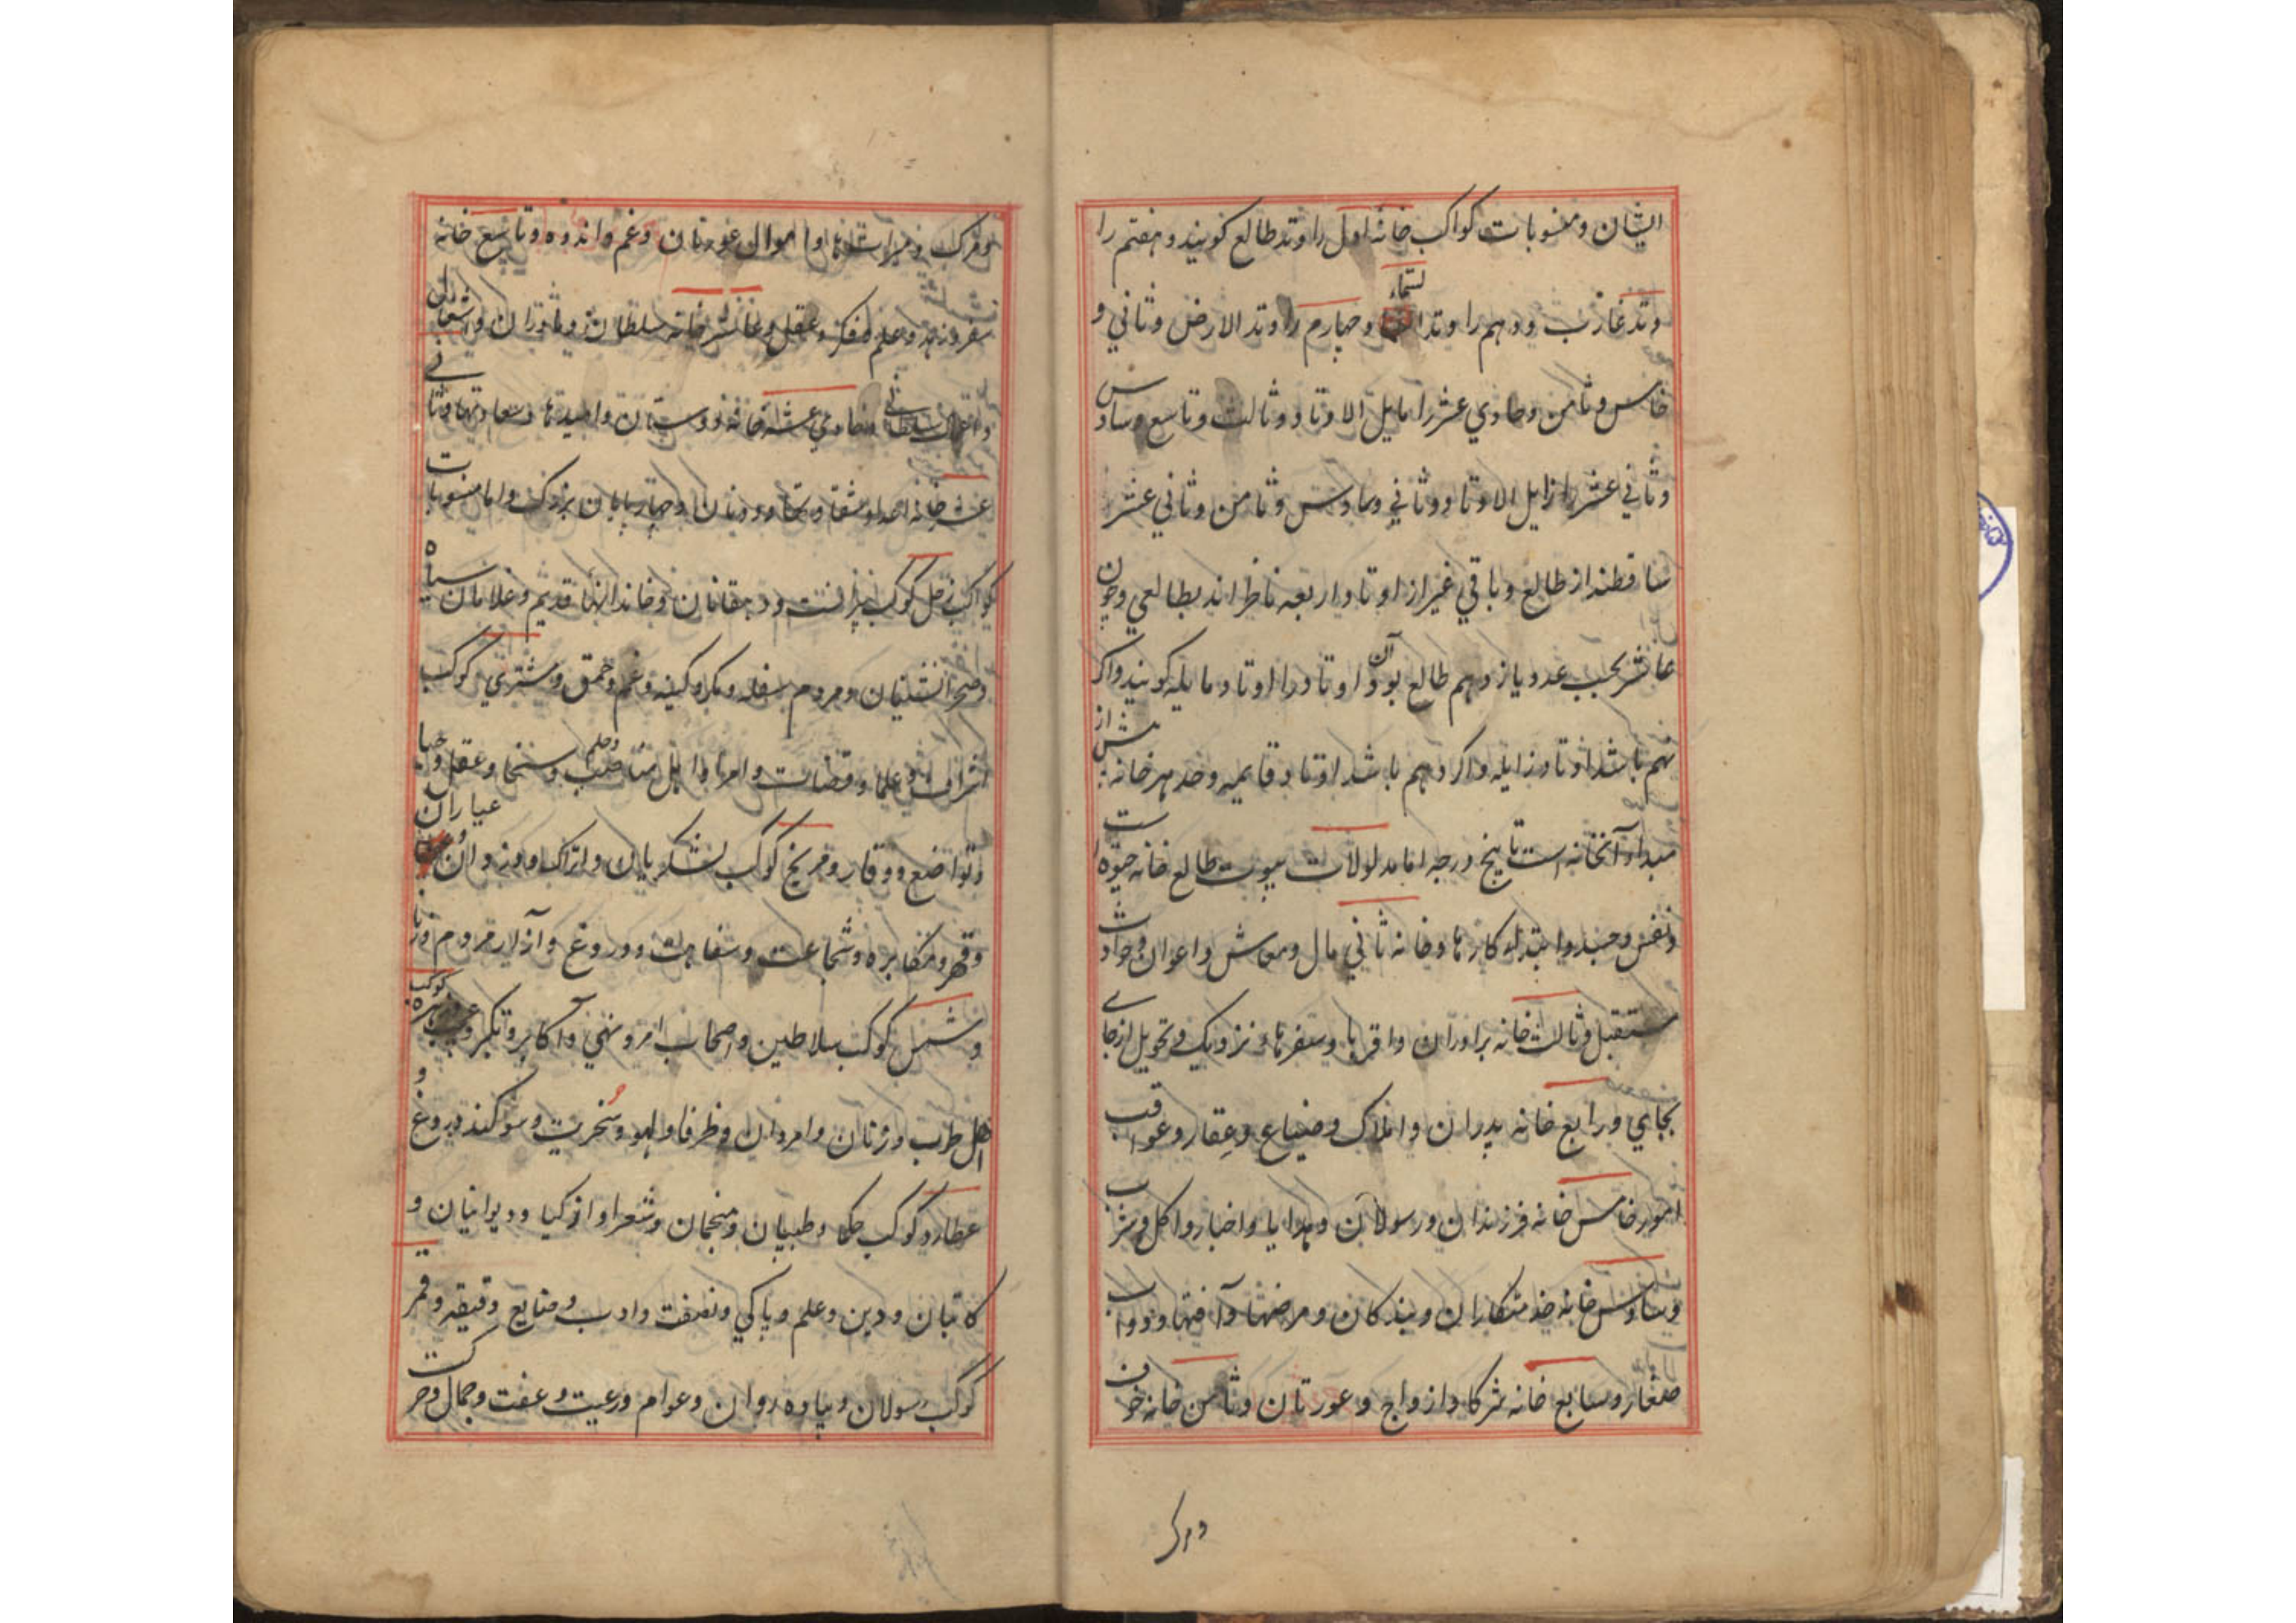 ایشان و منسوبات کواکب خانه اول را وتد طالع کویند و هفتم را
وتد غارب و دهم را وتد السماء و چهارم را وتد الارض و ثاني و
خامس و ثامن و حادي عشر را مایل الاوتاد و ثالث و تاسع و سادس
و ثاني عشر را زایل الاوتاد و ثاني و سادس و ثامن و ثاني عشر
ساقطند از طالع و باقي غیر از اوتاد اربعه ناظر اند بطالعي و چون
عاشر بحسب عدد یازدهم طالع بود آن اوتاد را اوتاد مایله کویند و اکر
نهم باشد اوتاد زایله و اکر دهم باشد اوتاد قایمه و حد هر خانه پیش از
مبداء آنخانه است تا پنج درجه اما مدلولات بیوت طالع خانه حیوة است
و نفس و جسد و ابتداء کارها و خانه ثاني مال و معاش و اعوان و حوادث
مستقبل و ثالث خانه برادران و اقربا و سفرها و نزدیک و تحویل از جاے
بجاي و رابع خانه پدران و املاک و ضیاع و عقار و عواقب
امور خامس خانه فرزندان و رسولان و هدایا و اخبار و اکل و شرب
و سادس خانه خدمتکاران و بندکان و مرضها و آفتها و دواب
صغار و سابع خانه شرکا و ازواج و عورتان و ثامن خانه خوف
و مرک
و مرک و میراث ها و اموال عورتان و غم و اندوه و تاسع خانه
سفر و زهد و علم و فکر و عقل و عاشر خانه سلطان و مادران و اشغال
و اعمال سلطاني و حادي عشر خانه دوستان و امیدها و سعادتها و ثاني
عشر خانه اعدا و شقاوتها و دونان و چهارپایان بزرک و اما منسوبات
کواکب زحل کوکب پیرانست و دهقانان و خاندانها قدیم و غلامان سیاه
و صحرانشینان و مردم سفله و مکر و کینه و غم و حمق و مشتري کوکب
اشراف و علما و قضات و امرا و اهل مناصب و حلم و سخا و عقل و حیا
و تواضع و وقار و مریخ کوکب لشکریان و اتراک و دزدان و عیاران
و قهر و مکابره و شجاعت و سفاهت و دروغ و آزار مردم و زنا
و شمس کوکب سلاطین و اصحاب امر و نهي و اکابر و تکبر و کوکب زهره
اهل طرب و زنان و امردان و ظرفا و لهو و سخریت و سوکند دروغ و
عطارد کوکب حکما و طبیبان و منجمان و شعرا و اذکیا و دیوانیان و
کاتبان و دین و علم و پاکي و نصفت و ادب و صنایع دقیقه و قمر
کوکب رسولان و پیاده روان و عوام و رعیت و عفت و جمال و حرکت